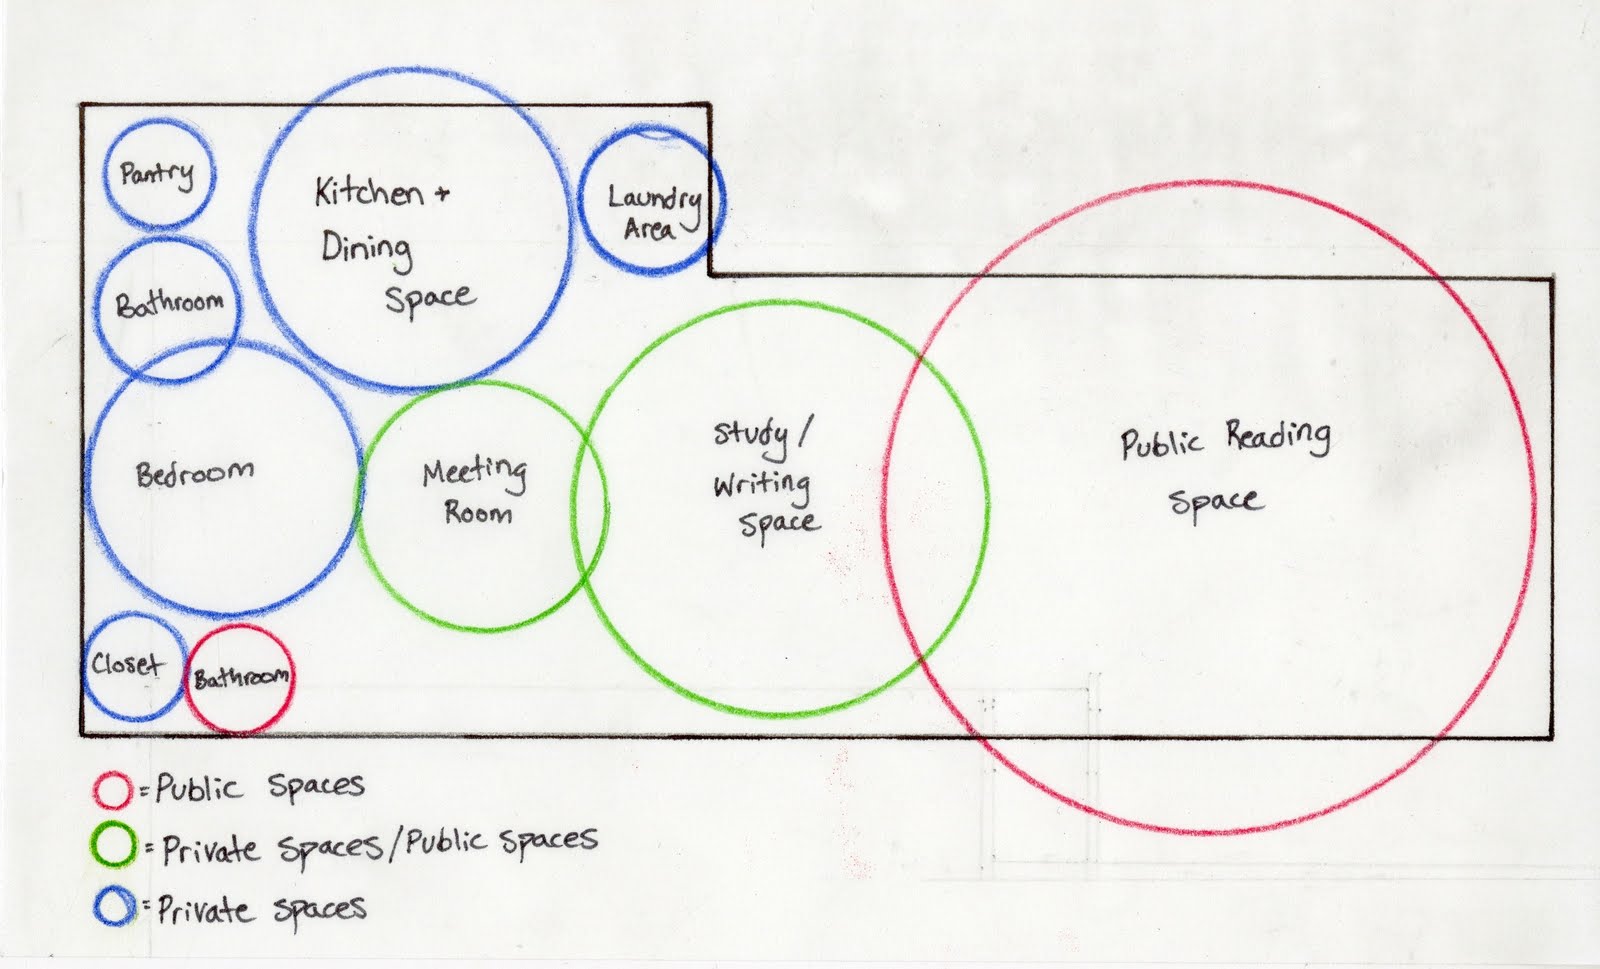 Pantry
Kitchen +
Dining
Space
Laundry
Area
Bathroom
Bedroom
Meeting
Room
Study/
Writing
Space
Public Reading
Space
Closet
Bathroom
= Public Spaces
= Private Spaces/Public Spaces
= Private Spaces